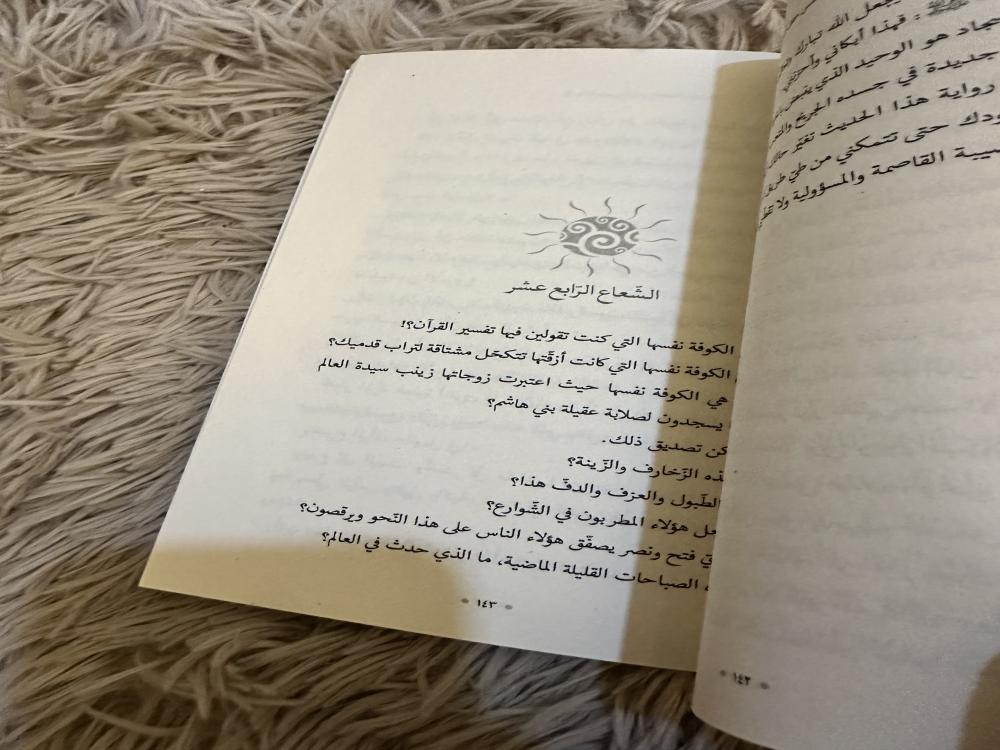 يجعل الله تبارك
: فهذا أبكاني وأحزنني
سجاد هو الوحيد الذي ينبض
جديدة في جسده الجريح
رواية هذا الحديث تغيّر
ودك حتى تتمكني من طيّ
صيبة القاصمة والمسؤولية ولا
١٤٢
الشّعاع الرّابع عشر
الكوفة نفسها التي كنت تقولين فيها تفسير القرآن؟!
الكوفة نفسها التي كانت أزقّتها تتكحّل مشتاقة لتراب قدميك؟
هي الكوفة نفسها حيث اعتبرت زوجاتها زينب سيدة العالم
يسجدون لصلابة عقيلة بني هاشم؟
كن تصديق ذلك.
ذه الزّخارف والزّينة؟
الطّبول والعزف والدفّ هذا؟
هؤلاء المطربون في الشّوارع؟
فتح ونصر يصفّق هؤلاء الناس على هذا النّحو ويرقصون؟
الصباحات القليلة الماضية، ما الذي حدث في العالم؟
١٤٣